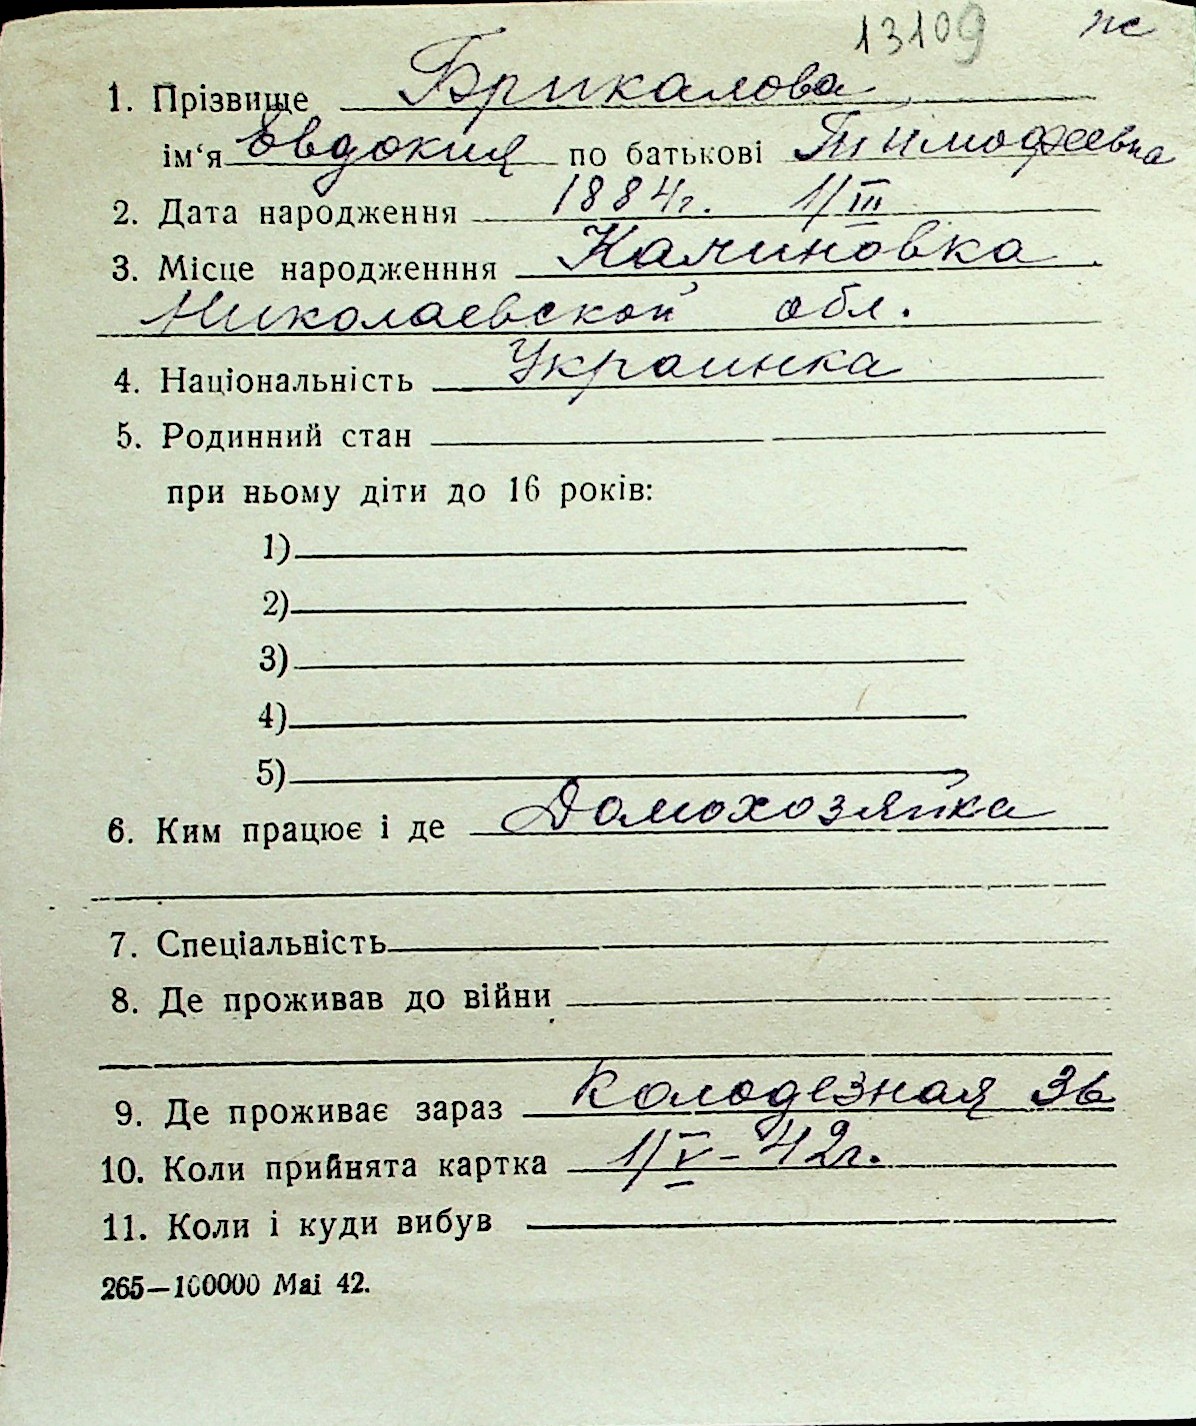 13109 ж
1. Прізвище Брикалова
ім‘я Евдокия по батькові Тимофеевна
2. Дата народження 1884г. 1/III
3. Місце народженння Калиновка
Николаевской обл.
4. Національність Украинка
5. Родинний стан
при ньому діти до 16 років:
1)
2)
3)
4)
5)
6. Ким працює і де Домохозяйка
7. Спеціальність
8. Де проживав до війни
9. Де проживає зараз Колодезная 36
10. Коли прийнята картка 1/V-42г.
11. Коли і куди вибув
265—100000 Mai 42.